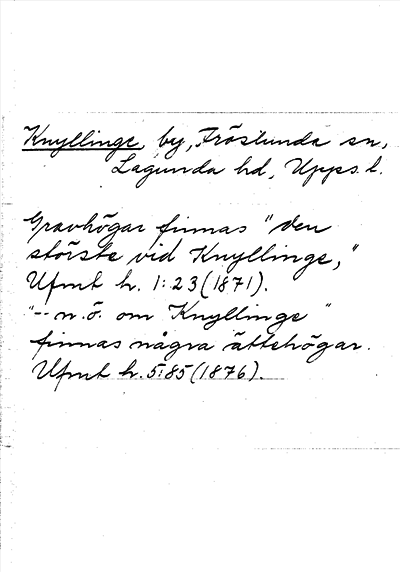 Knyllinge, by, Fröslunda sn,
Lagunda hd, Upps. l.
Gravhögar finnas "den
störste vid Knyllinge,"
Ufmt h. 1:23 (1871).
"-- n.ö. om Knyllinge "
finnas några ättehögar.
Ufmt h. 5:85 (1876).